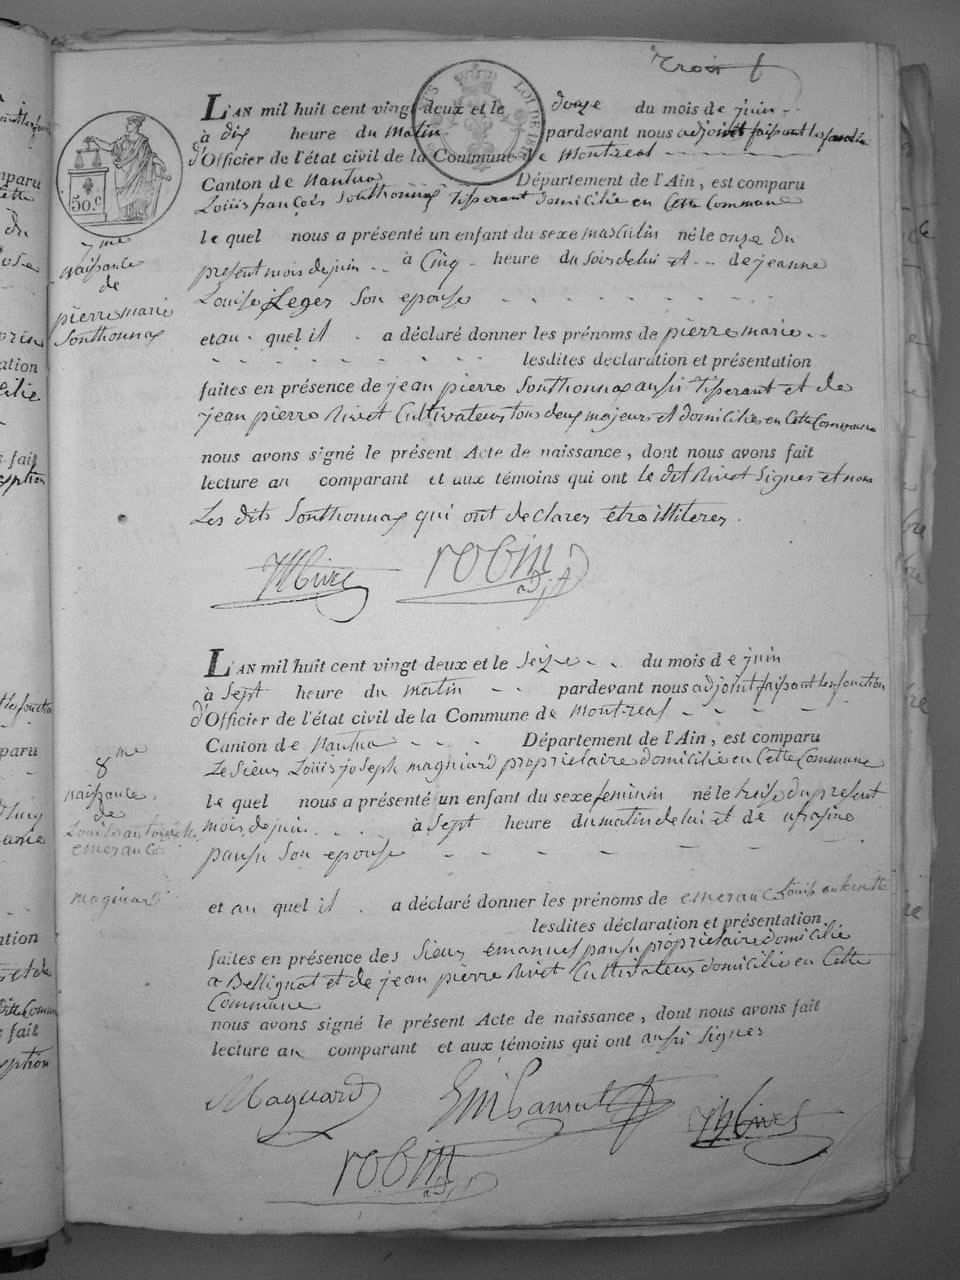 trois
L'AN mil huit cent vingt deux et le douze du mois de juin
à dix heure du matin pardevant nous adjoint faisant les fonction
d'Officier de l'état civil de la Commune de Montreal
Canton de nantua Département de l'Ain, est comparu
Louis françois Sonthonnax tisserant domicilié en Cette Commune
le quel nous a présenté un enfant du sexe masculin né le onze du
present mois de juin à Cinq heure du soir de lui et de jeanne
Louise Leger Son epouse
et au quel il a déclaré donner les prénoms de pierre marie
lesdites déclaration et présentation
faites en présence de jean pierre Sonthonnax aussi tisserant et de
jean pierre Nivet Cultivateur tous deux majeurs et domicilié en Cette Commune
nous avons signé le présent Acte de naissance, dont nous avons fait
lecture au comparant et aux témoins qui ont le dit Nivet Signer et non
Les dits Sonthonnax qui ont declarer être illiteres.
robin
adjt
50.C
7me
naissance
de
pierre marie
Sonthonnax
L'AN mil huit cent vingt deux et le Seize du mois de juin
à Sept heure du matin pardevant nous adjoint faisant les fonction
d'Officier de l'état civil de la Commune de Montreal
Canton de Nantua Département de l'Ain, est comparu
Le Sieur Louis joseph magniard propriétaire domicilié en Cette Commune
le quel nous a présenté un enfant du sexe feminin né le treise du present
mois de juin à Sept heure du matin de lui et de
Son epouse
et au quel il a déclaré donner les prénoms de
lesdites déclaration et présentation
faites en présence des Sieur emanuel propriétaire domicilié
a Bellignat et de jean pierre Nivet Cultivateur domicilié en Cette
Commune
nous avons signé le présent Acte de naissance, dont nous avons fait
lecture au comparant et aux témoins qui ont aussi Signer
Magniard
robin
adjt
8me
naissance
de
magniard